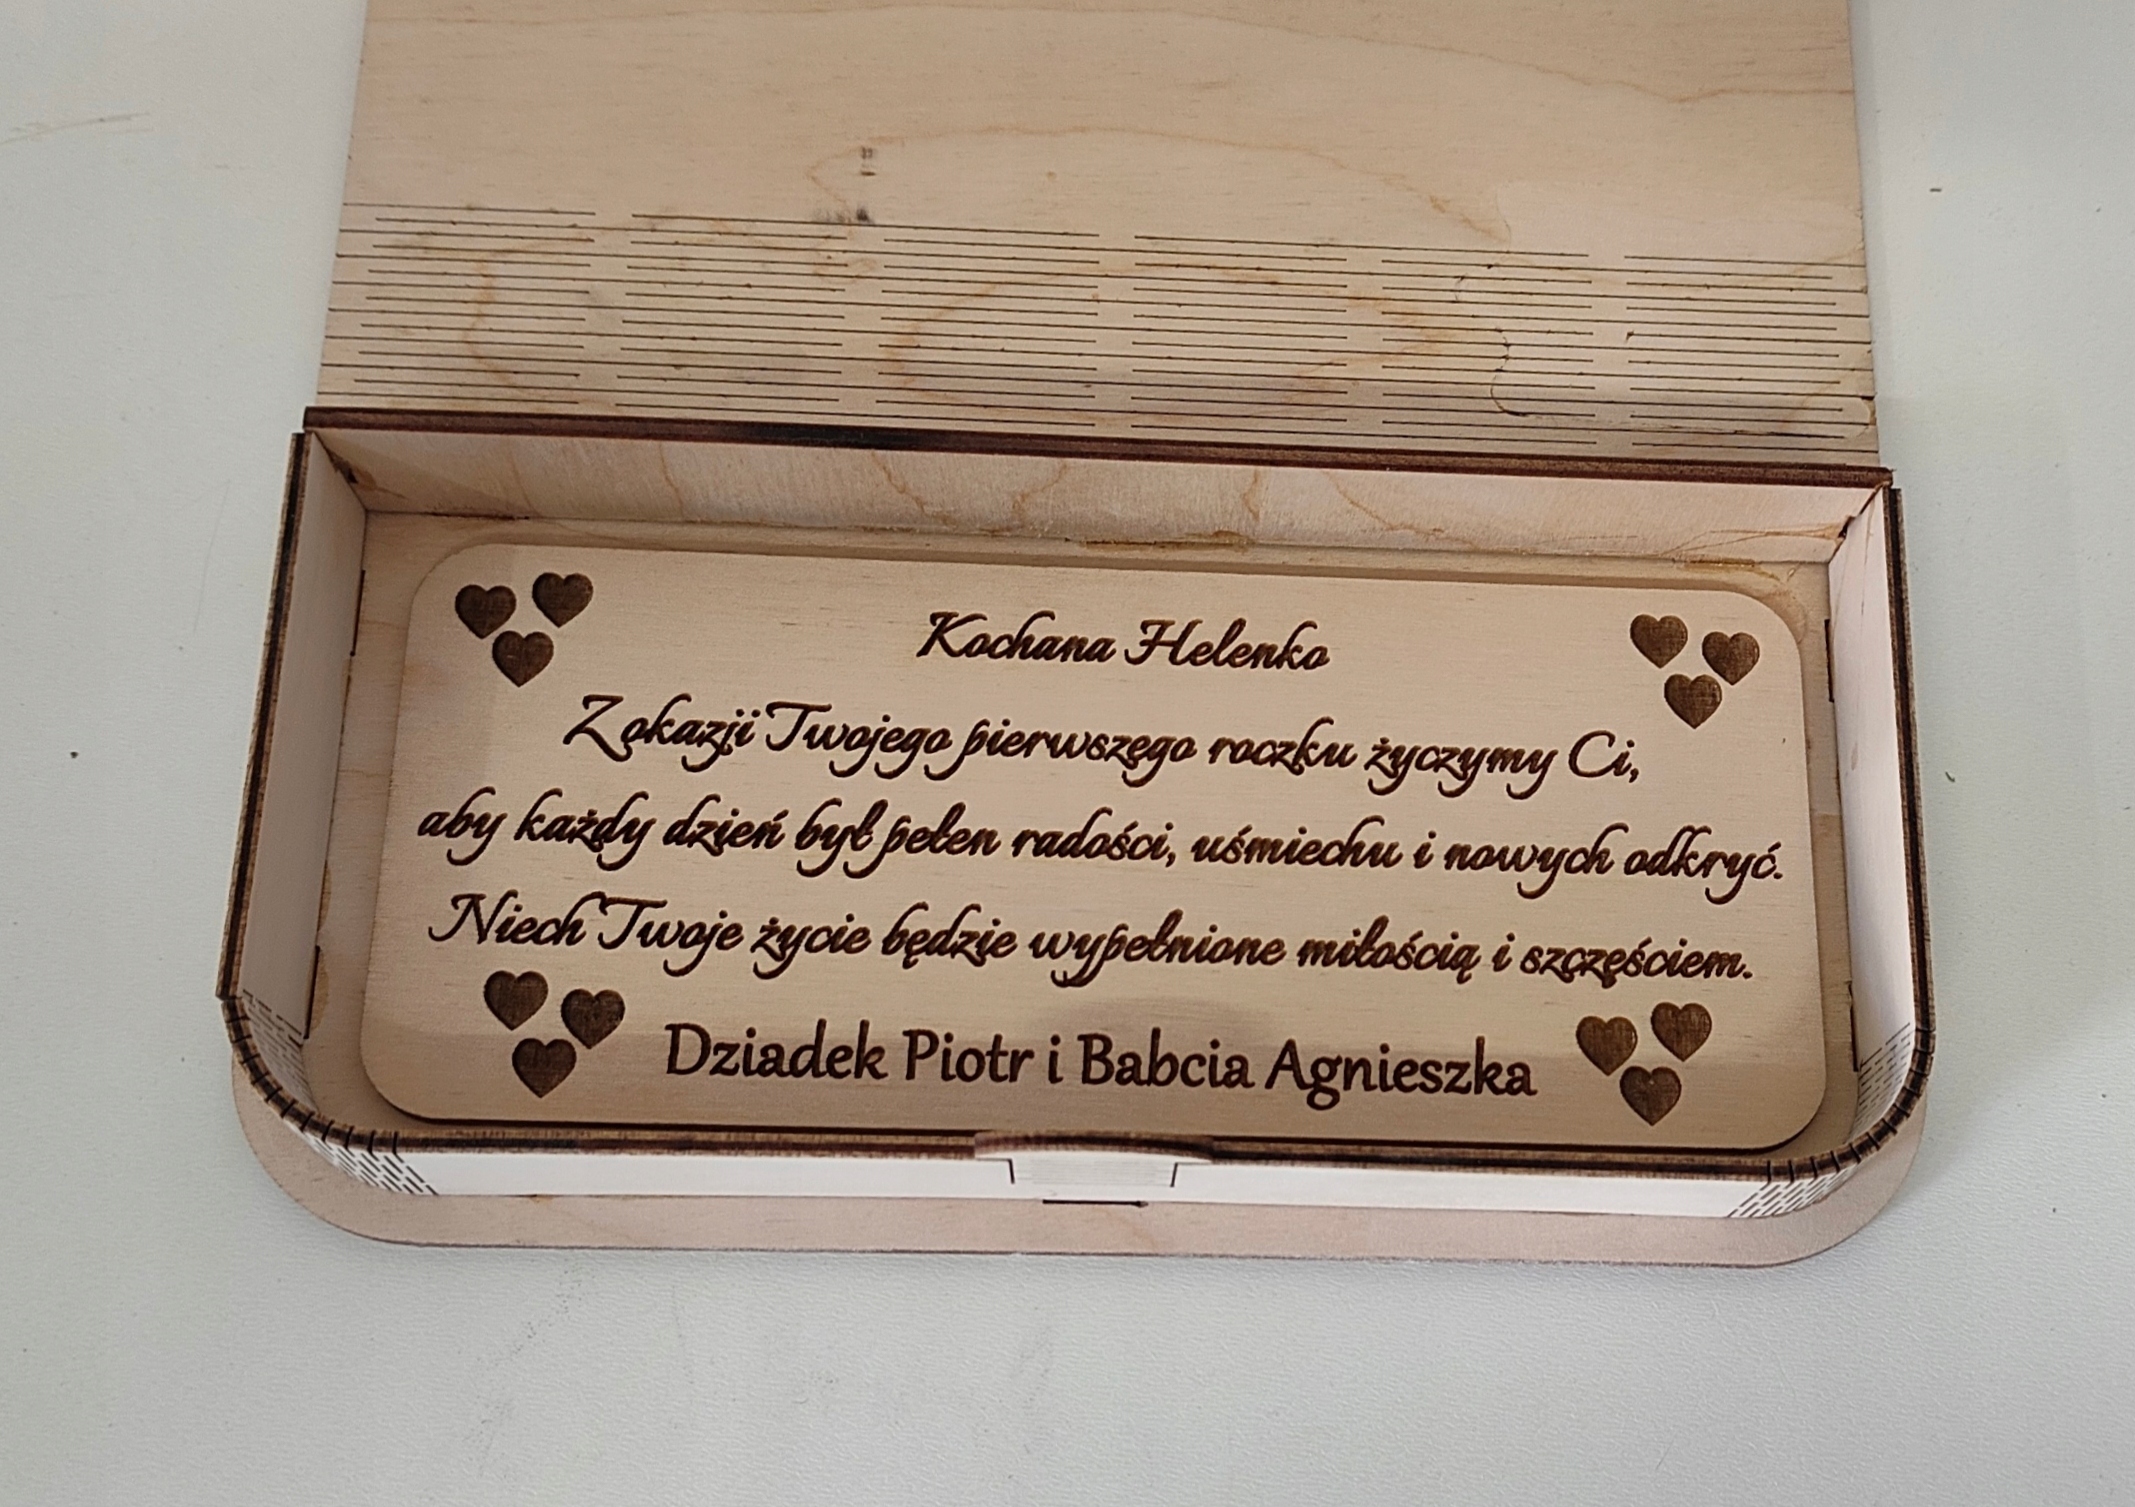 Kochana Helenko
Z okazji Twojego pierwszego roczku życzymy Ci,
aby każdy dzień był pełen radości, uśmiechu i nowych odkryć.
Niech Twoje życie będzie wypełnione miłością i szczęściem.
Dziadek Piotr i Babcia Agnieszka